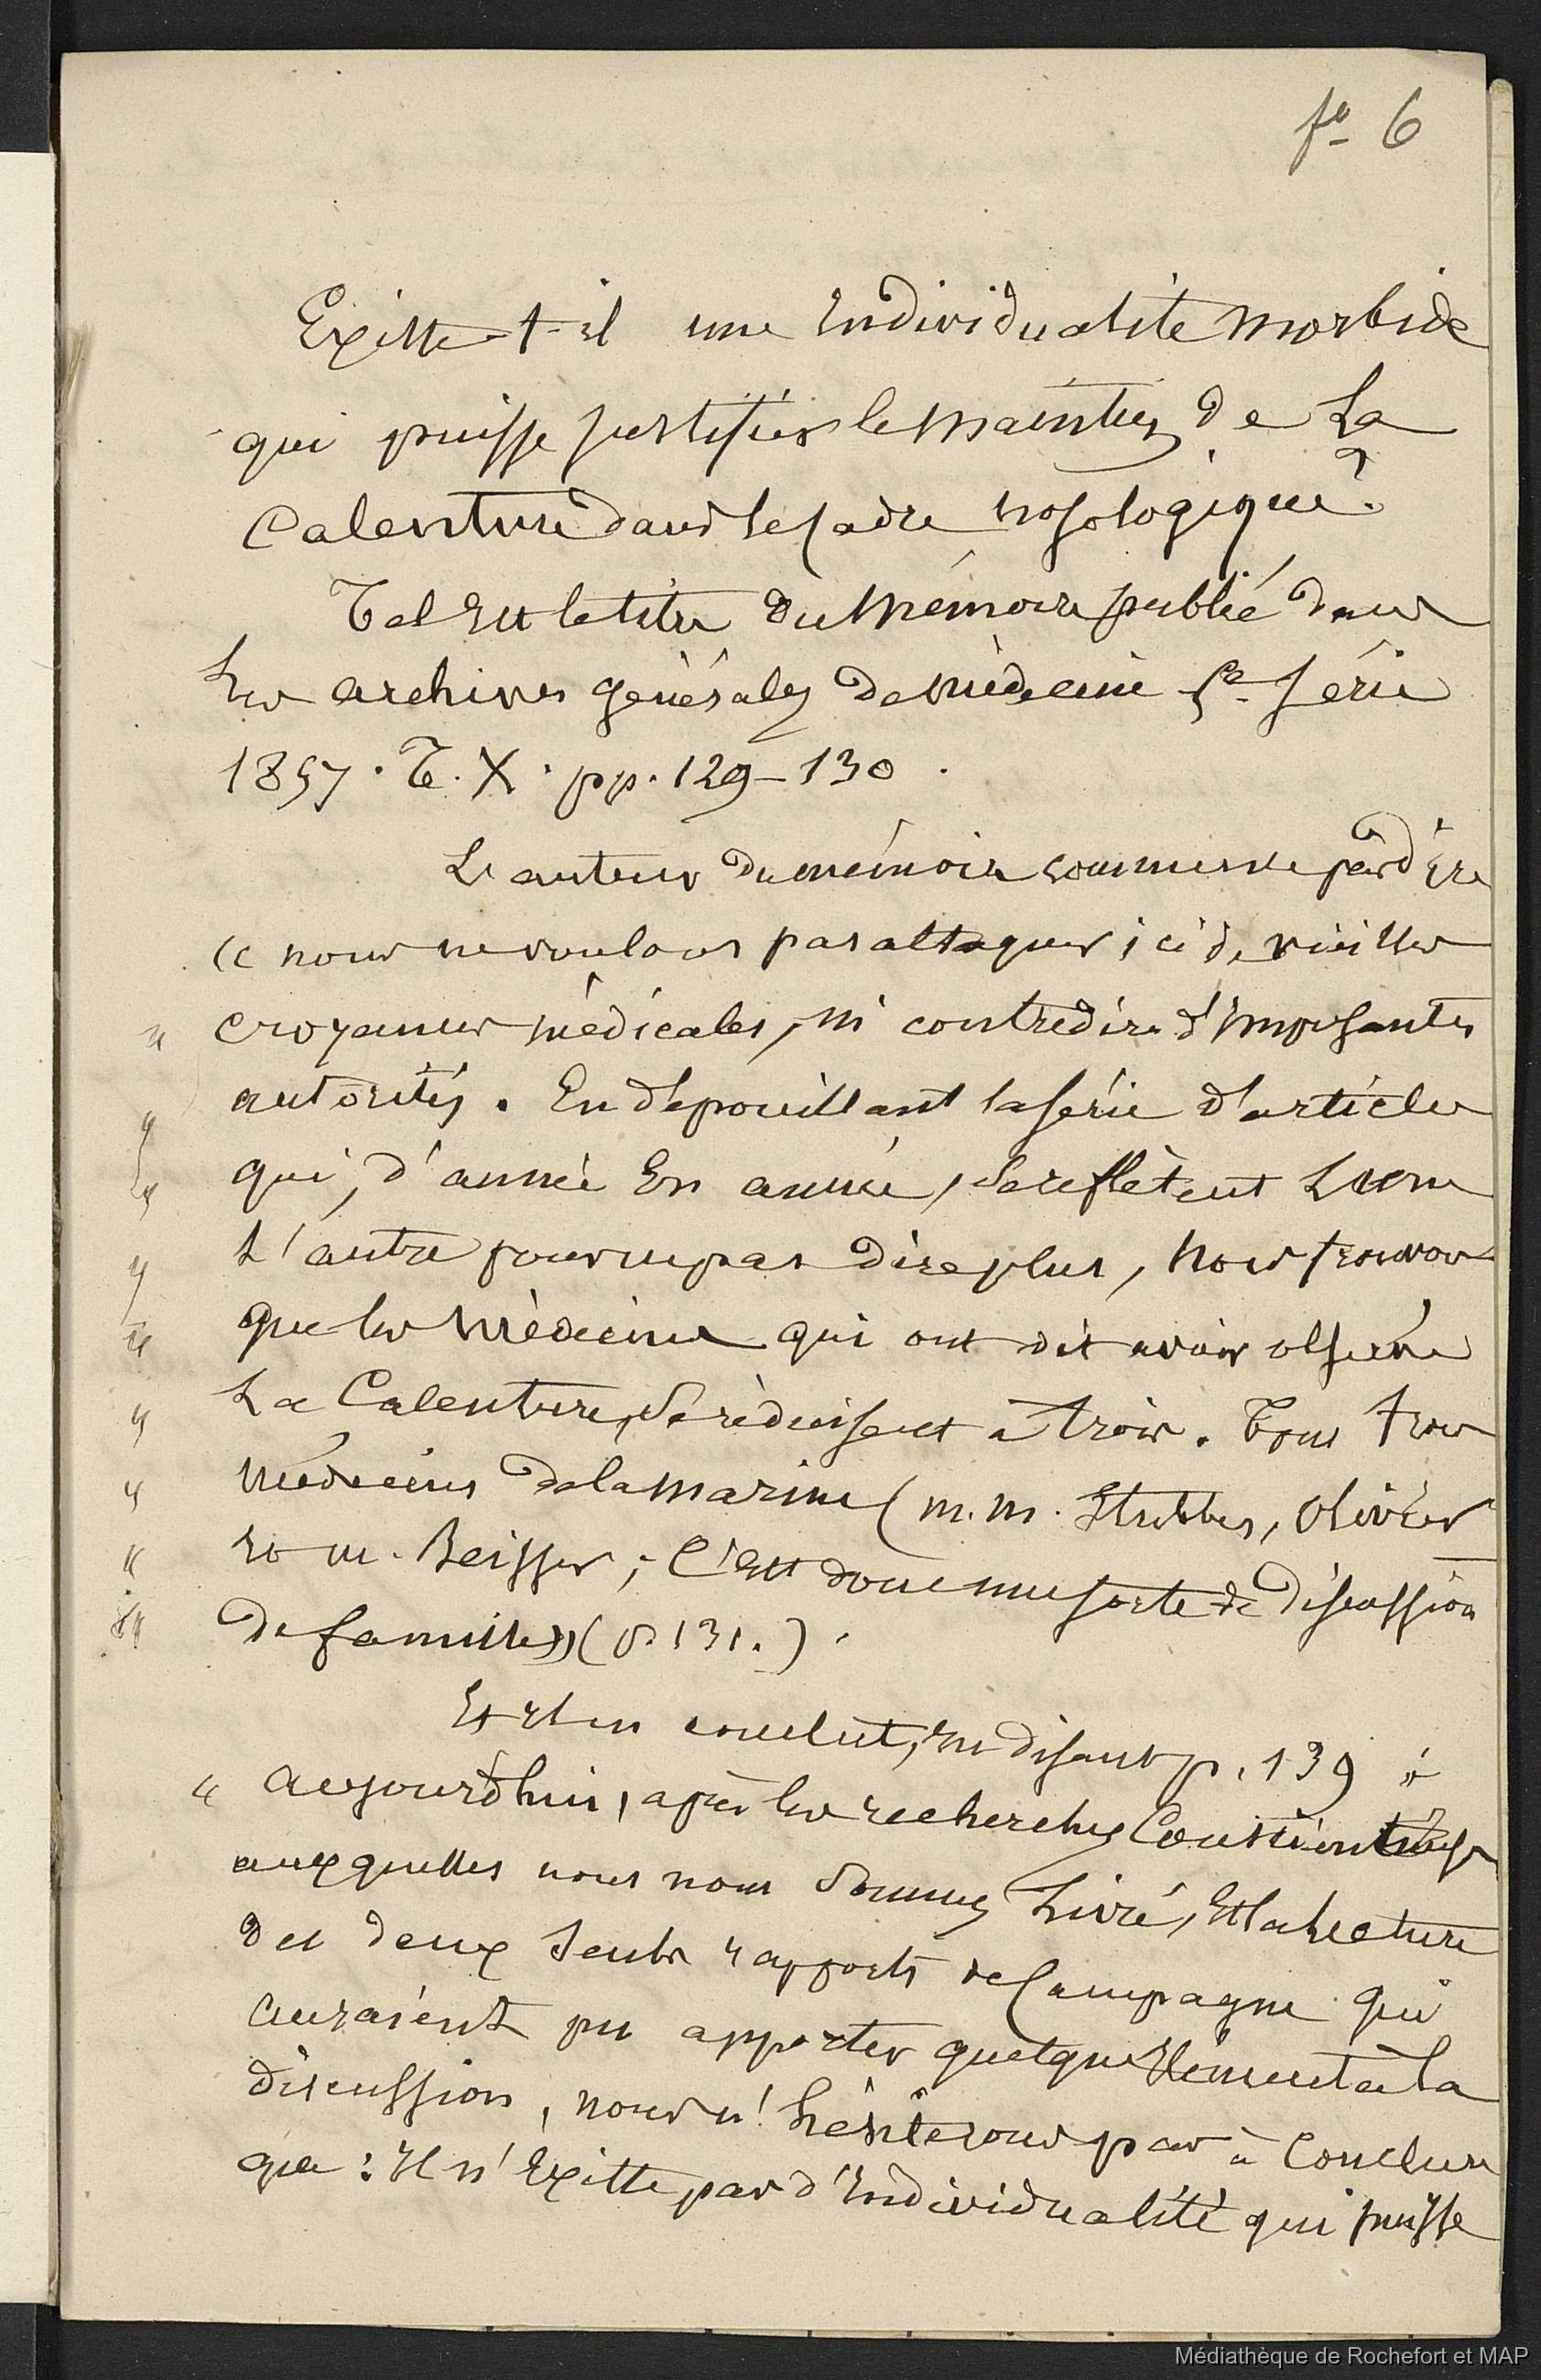 fo 6
Existe-t-il une individualité morbide
qui puisse justifier le maintien de La
Calenture dans le cadre nosologique?
Tel est le titre du Mémoire publié dans
Les archives générales de médecine 5e Série
1857. T. X. pp. 129-130.
L'auteur du mémoire commence par dire
« nous ne voulons pas attaquer ici de vieilles
" croyances médicales, ni contredire d'imposantes
autorités. En dépouillant la série d'articles
" qui, d'année En année, se reflètent L'un
" L'autre pour ne pas dire plus, nous trouvons
" que les médecins qui ont dit avoir observé
" La Calenture, Se réduisent à trois. Tous trois
" médecins de la marine (m.m. Stubbes, Olivier
" Et m. Beisser; C'est donc une sorte de discussion
" de famille» (p. 131.).
Et il en conclut, en disant p. 139 :
" aujourd'hui, après les recherches
auxquelles nous nous Sommes Livré, Et la Lecture
des deux Seuls rapports de Campagne qui
auraient pu apporter quelque Elément à la
discussion, nous n'hésitons pas à Conclure
que : Il n'Existe pas d'Individualité qui puisse
Médiathèque de Rochefort et MAP